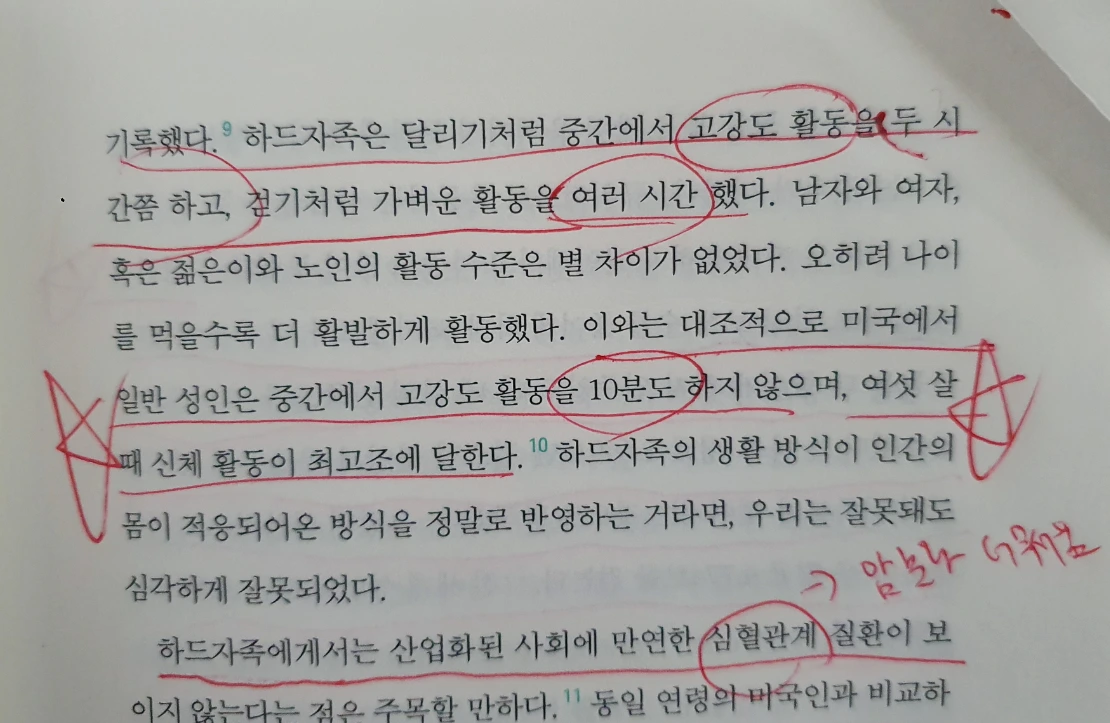 기록했다.9 하드자족은 달리기처럼 중간에서 고강도 활동을 두 시
간쯤 하고, 걷기처럼 가벼운 활동을 여러 시간 했다. 남자와 여자,
혹은 젊은이와 노인의 활동 수준은 별 차이가 없었다. 오히려 나이
를 먹을수록 더 활발하게 활동했다. 이와는 대조적으로 미국에서
일반 성인은 중간에서 고강도 활동을 10분도 하지 않으며, 여섯 살
때 신체 활동이 최고조에 달한다.10 하드자족의 생활 방식이 인간의
몸이 적응되어온 방식을 정말로 반영하는 거라면, 우리는 잘못돼도
심각하게 잘못되었다.
⇒ 암보다
하드자족에게서는 산업화된 사회에 만연한 심혈관계 질환이 보
이지 않는다는 점은 주목할 만하다.11 동일 연령의 미국인과 비교하